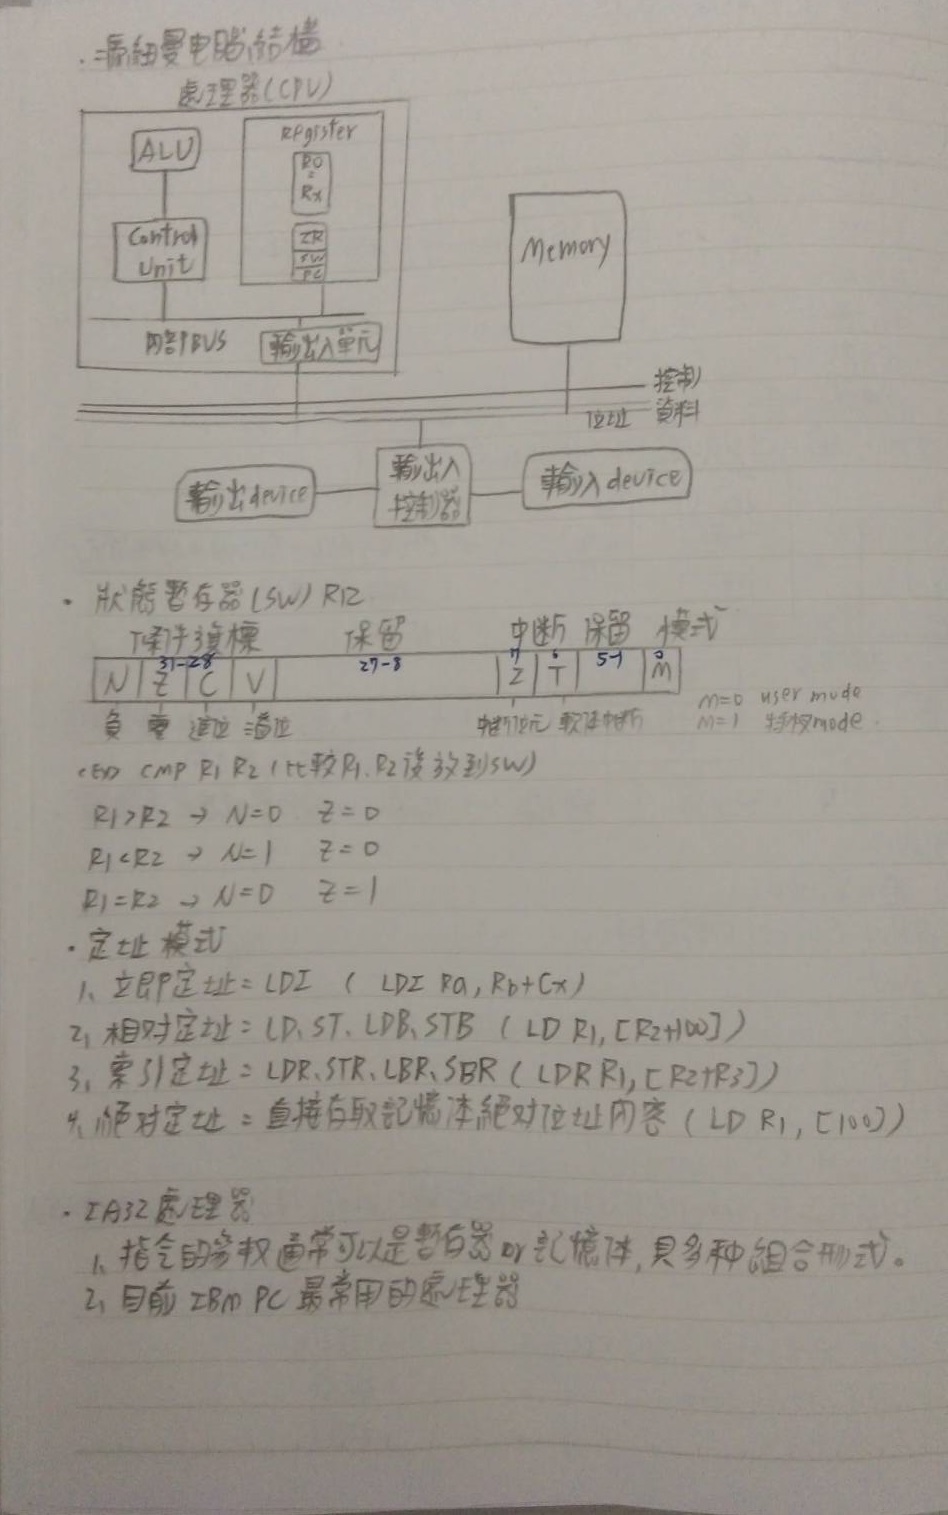 ·馮紐曼电腦結構
處理器(CPU)
ALU
Register
R0
:
Rx
Control
Unit
IR
SW
PC
Memory
內部BUS
輸出入單元
控制
位址 資料
輸出device
輸出入
控制器
輸入device
·狀態暫存器(SW) R12
條件旗標 保留 中断 保留 模式
31-28 27-8 7 6 5-1 0
N Z C V I T M
負 零 進位 溢位 中断位元 軟体中断
M=0 user mode
M=1 特权mode
CMP R1 R2 (比較R1、R2後放到SW)
R1>R2 → N=0 Z=0
R1<R2 → N=1 Z=0
R1=R2 → N=0 Z=1
·定址模式
1、立即定址=LDI ( LDI Ra, Rb+Cx)
2、相对定址=LD、ST、LDB、STB ( LD R1, [R2+100])
3、索引定址=LDR、STR、LBR、SBR ( LDR R1, [R2+R3])
4、絕对定址=直接存取記憶体絕对位址內容 ( LD R1, [100])
·IA32處理器
1、指令的參数通常可以是暫存器or記憶体,具多种組合形式。
2、目前IBM PC最常用的處理器